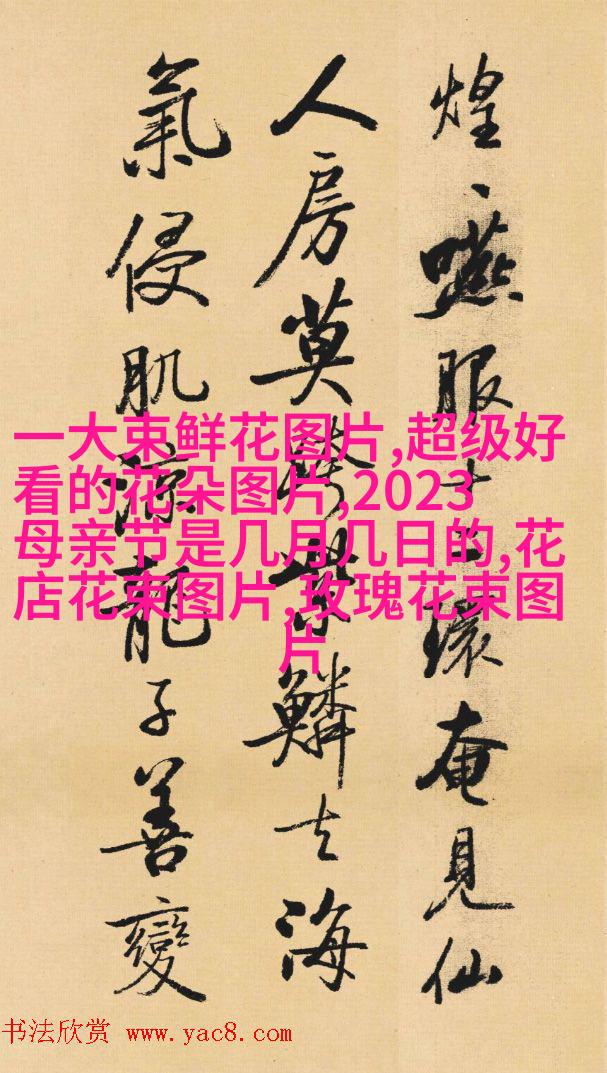 煌、嚥服十二環奄見仙
人房莫跨紫鱗去海
氣侵肌涼龍子善變
一大束鲜花图片,超级好
看的花朵图片,2023
母亲节是几月几日的,花
店花束图片,玫瑰花束图
片
书法欣赏 www.yac8.com